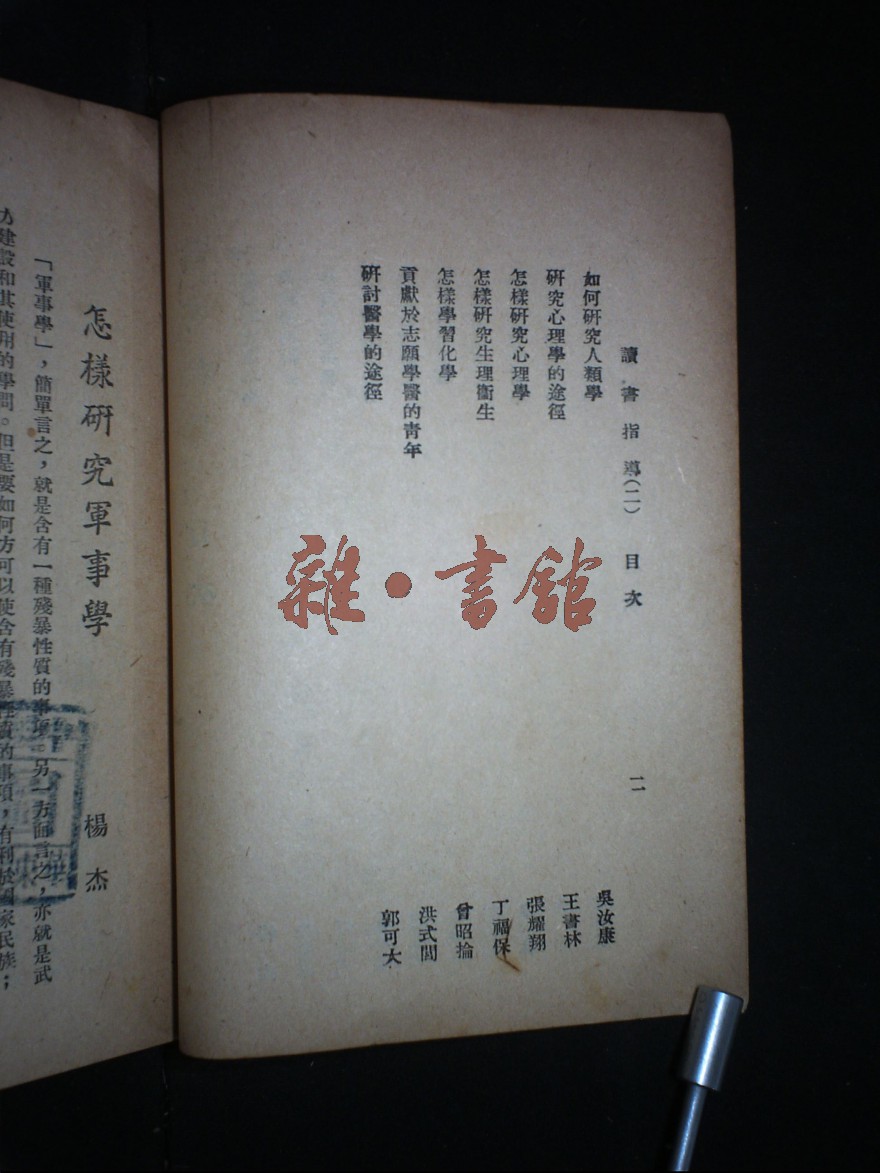 讀書指導(二) 目次 二
如何研究人類學 吳汝康
研究心理學的途徑 王書林
怎樣研究心理學 張耀翔
怎樣研究生理衞生 丁福保
怎樣學習化學 曾昭掄
貢獻於志願學醫的靑年 洪式閭
研討醫學的途徑 郭可大
雜·書館
怎樣硏究軍事學 楊杰
「軍事學」，簡單言之，就是含有一種殘暴性質的事項。另一方面言之，亦就是武
力建設和其使用的學問。但是要如何方可以使含有殘暴性質的事項，有利於國家民族；